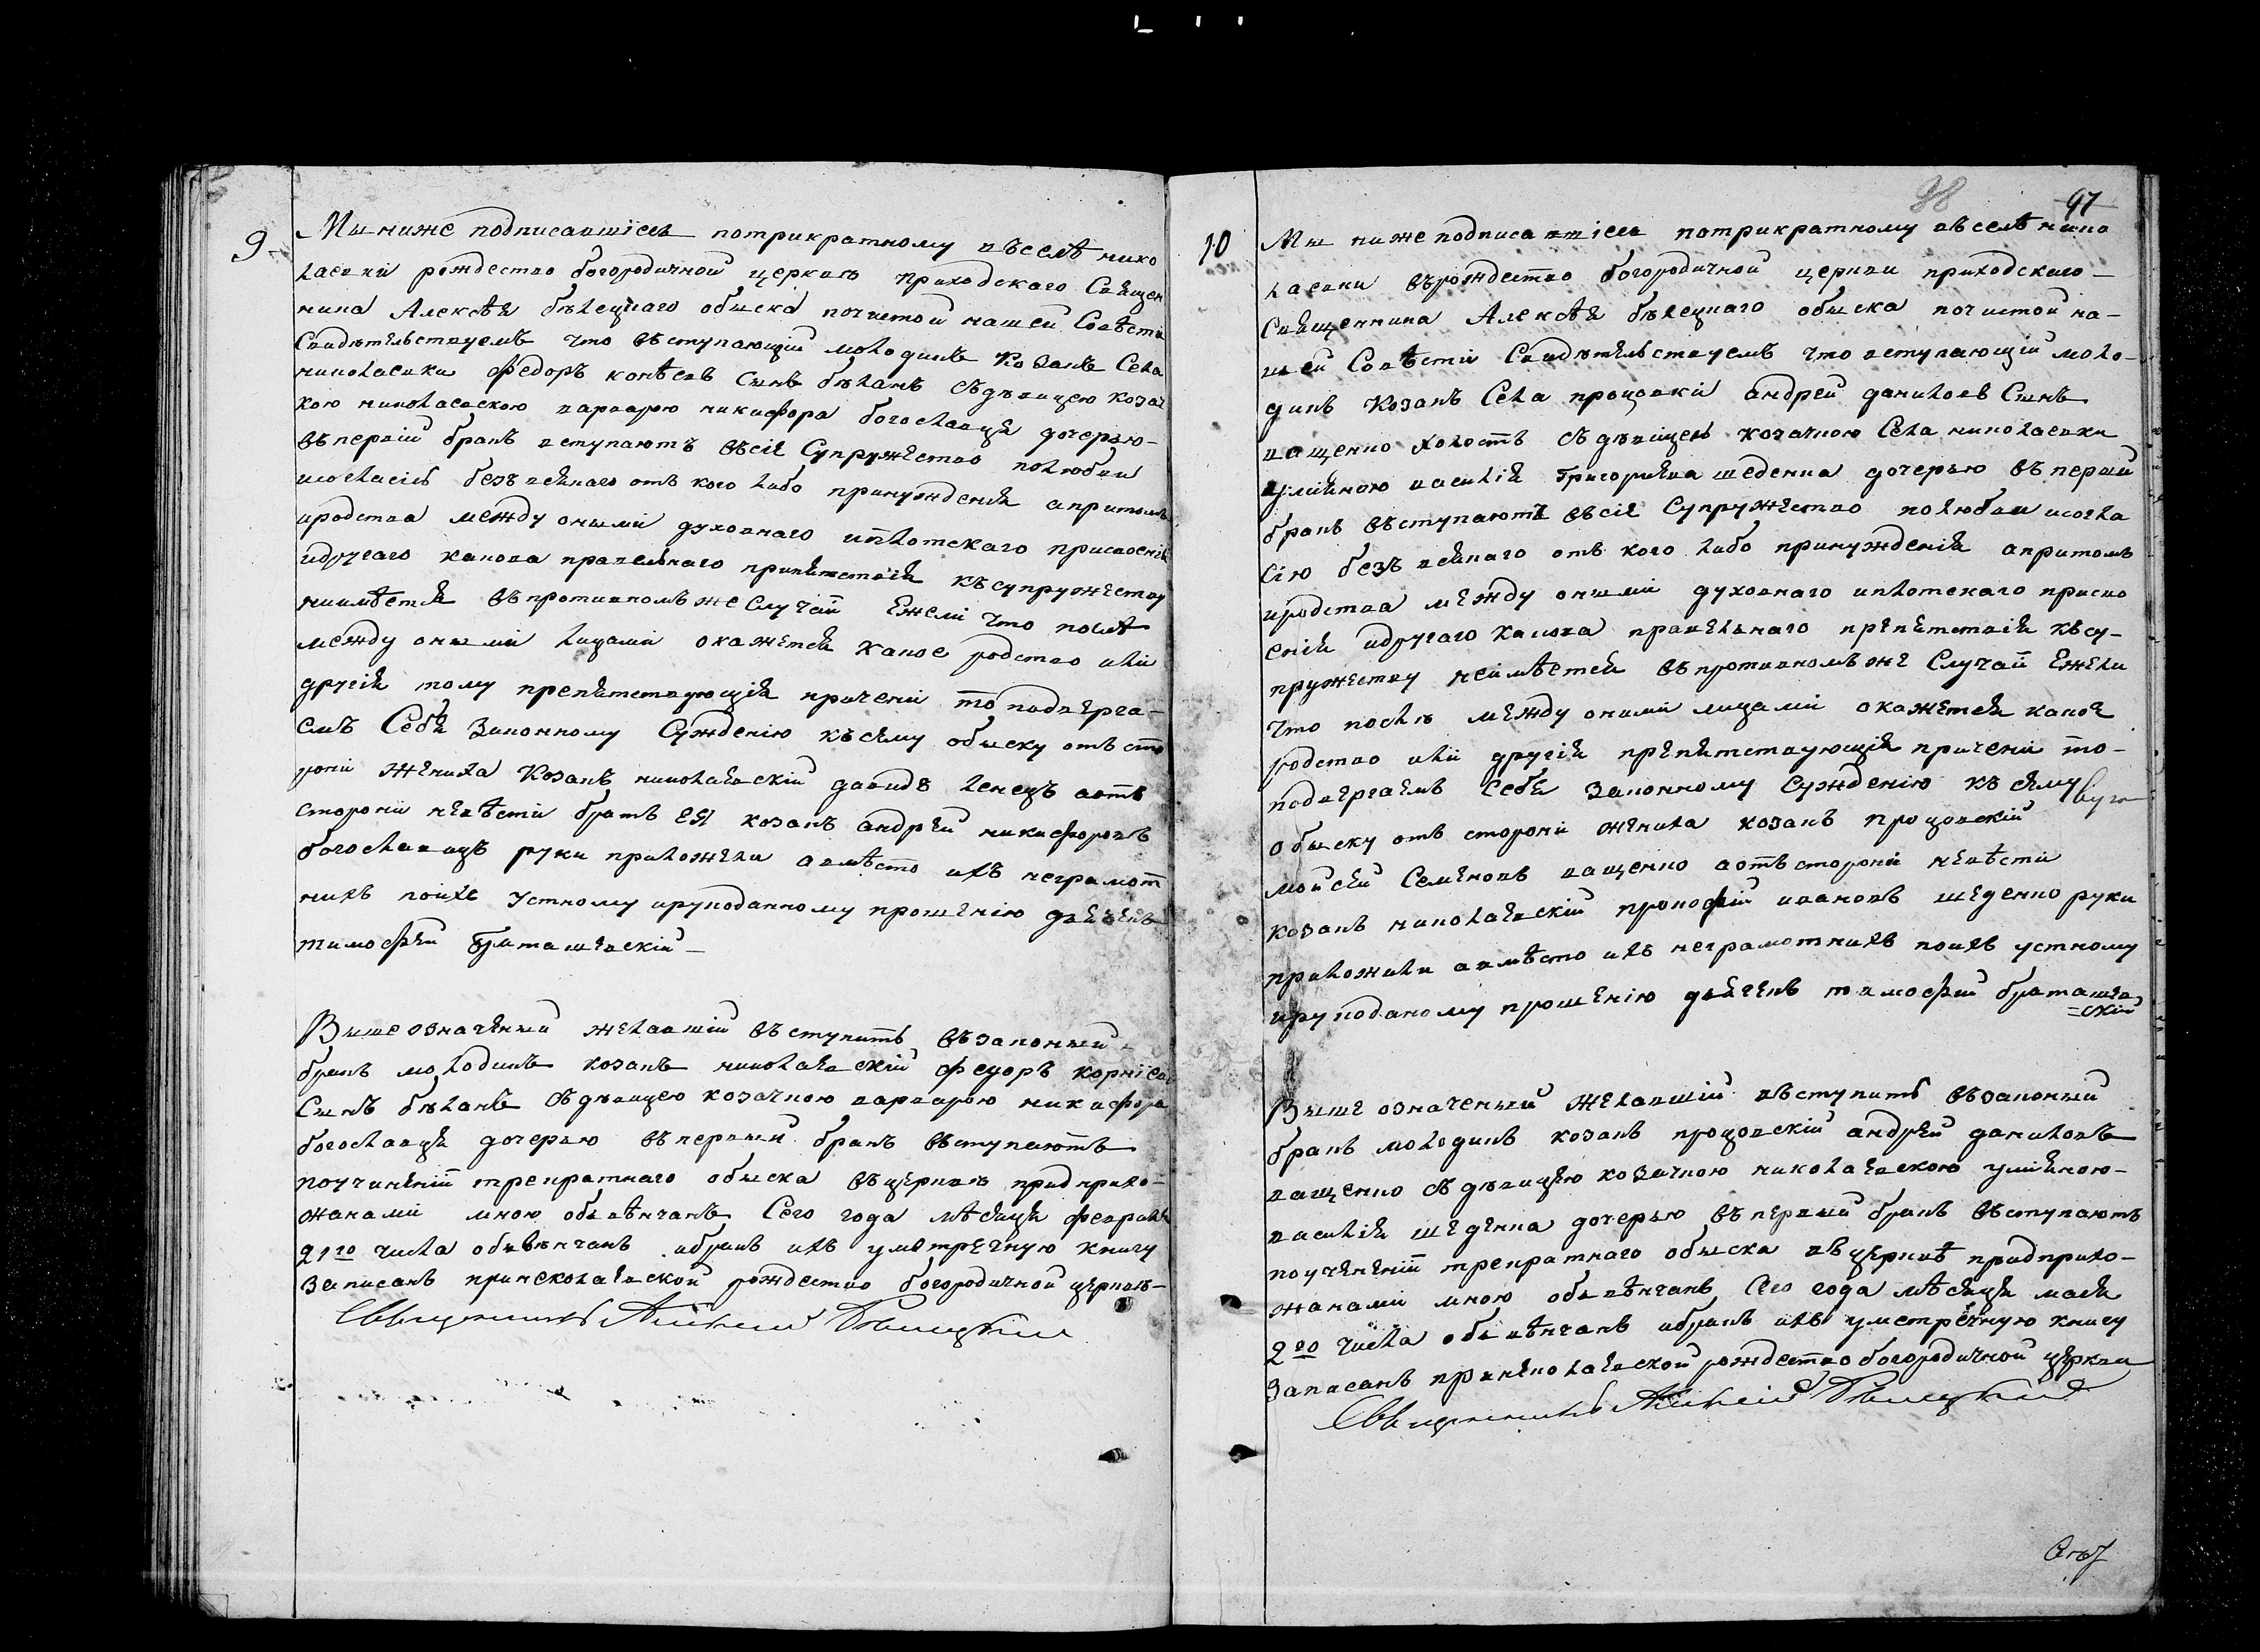 9
Мы ниже подписавшіесь потрикратному въселѣ нико
лаевкѣ рождество богородичной церквѣ приходского Священ
ника Алексѣя бѣлецкаго обыска почистой нашей Совѣсти
Свидѣтельствуемъ что въступающій молодикъ козакъ Села
николаевки федоръ Сынъ бѣланъ съдѣвицею козач
кою николаевскою варварою никифора богославця дочерью-
въ первій бракъ вступаютъ въсіе Супружество полюбви
исогласію безъ всякаго отъ кого либо принужденія апритомъ
иродства между оными духовнаго иплотскаго присвоенія
идругаго какова правельнаго припятствія къ супружеству
ниимѣется въпротивномъ же Случаѣ Ежели что послѣ
между оными лицами окажется какое родство или
другія тому препятствующія причени то подверга-
емъ Себя законному Сужденію къ сему обыску отъ сто
роні жениха козакъ николаевскій давидъ ленецъ аотъ
стороні невѣсти братъ ЕЯ козакъ андрей никифоровъ
богославецъ руки приложили авмѣсто ихъ неграмот
нихъ поихъ устному ируподанному прошенію дьячекъ
тимофей браташевскій-
Вышеозначеный желавшій въступить възаконый-
бракъ молодикъ козакъ николаевскій федоръ корніев
Сынъ бѣланъ съдѣвицею козачкою варварою никифора
богославця дочерью въ первый бракъ въступаютъ
поучиненіи трекратнаго обыска въцерквѣ придприхо-
жанами мною обвѣнчанъ Сего года мѣсяца февраля
21го числа обвѣнчанъ ибракъ ихъ уметречную книгу
Записанъ принеколаевской рождество богородичной церквѣ-
Священникъ Алексей Бѣлецкій
98
97
10
Мы ниже подписавшіесь потрикратному въселѣ нико
лаевки върождество богородичной церкви приходскаго-
Священника Алексѣя бѣлецкаго обыска почистой на-
шей Совѣсти Свидѣтельствуемъ что вступающій моло-
дикъ козакъ Села процовкі андрей данилоев Сынъ
ващенко холостъ съ дѣвицею козачкою Села николаевки
уліяною василія Григорієва шеденка дочерью въ первый
бракъ въступаютъ въсіе Супружество полюбви исогла
сію безъ всякаго отъ кого либо принужденія апритомъ
иродства между оными духовнаго иплотскаго присво
енія идругаго какова правельнаго препятствія къ су-
пружеству неімѣется въпротивномъ же Случаѣ Ежели
что послѣ между оними лицами окажется какое
родство или другія препятствующія причени то-
подвергаемъ Себя законному Сужденію къ сему
обыску отъ стороні жениха козакъ процовскій
мойсей Семеновъ ващенко аотъ стороні невѣсти
козакъ николаевскій прокофій ивановъ шеденко руки
приложили авмѣсто ихъ неграмотнихъ поихъ устному
ируподаному прошенію дьячекъ тимофей браташев
=скій
Выше означеный желавшій въступить възаконый
бракъ молодикъ козакъ процовскій андрей даниловъ
ващенко съ дѣвицею козачкою николаевскою уліяною-
василія шеденка дочерью въ первый бракъ въступаютъ
поучененіи трекратнаго обыска въ церквѣ придприхо-
жанами мною обвѣнчанъ Сего года мѣсяца маія
2го числа обвѣнчанъ ибракъ ихъ уметречную книгу
Записанъ принеколаевской рождество богородичной церкви
Священникъ Алексей Бѣлецкій